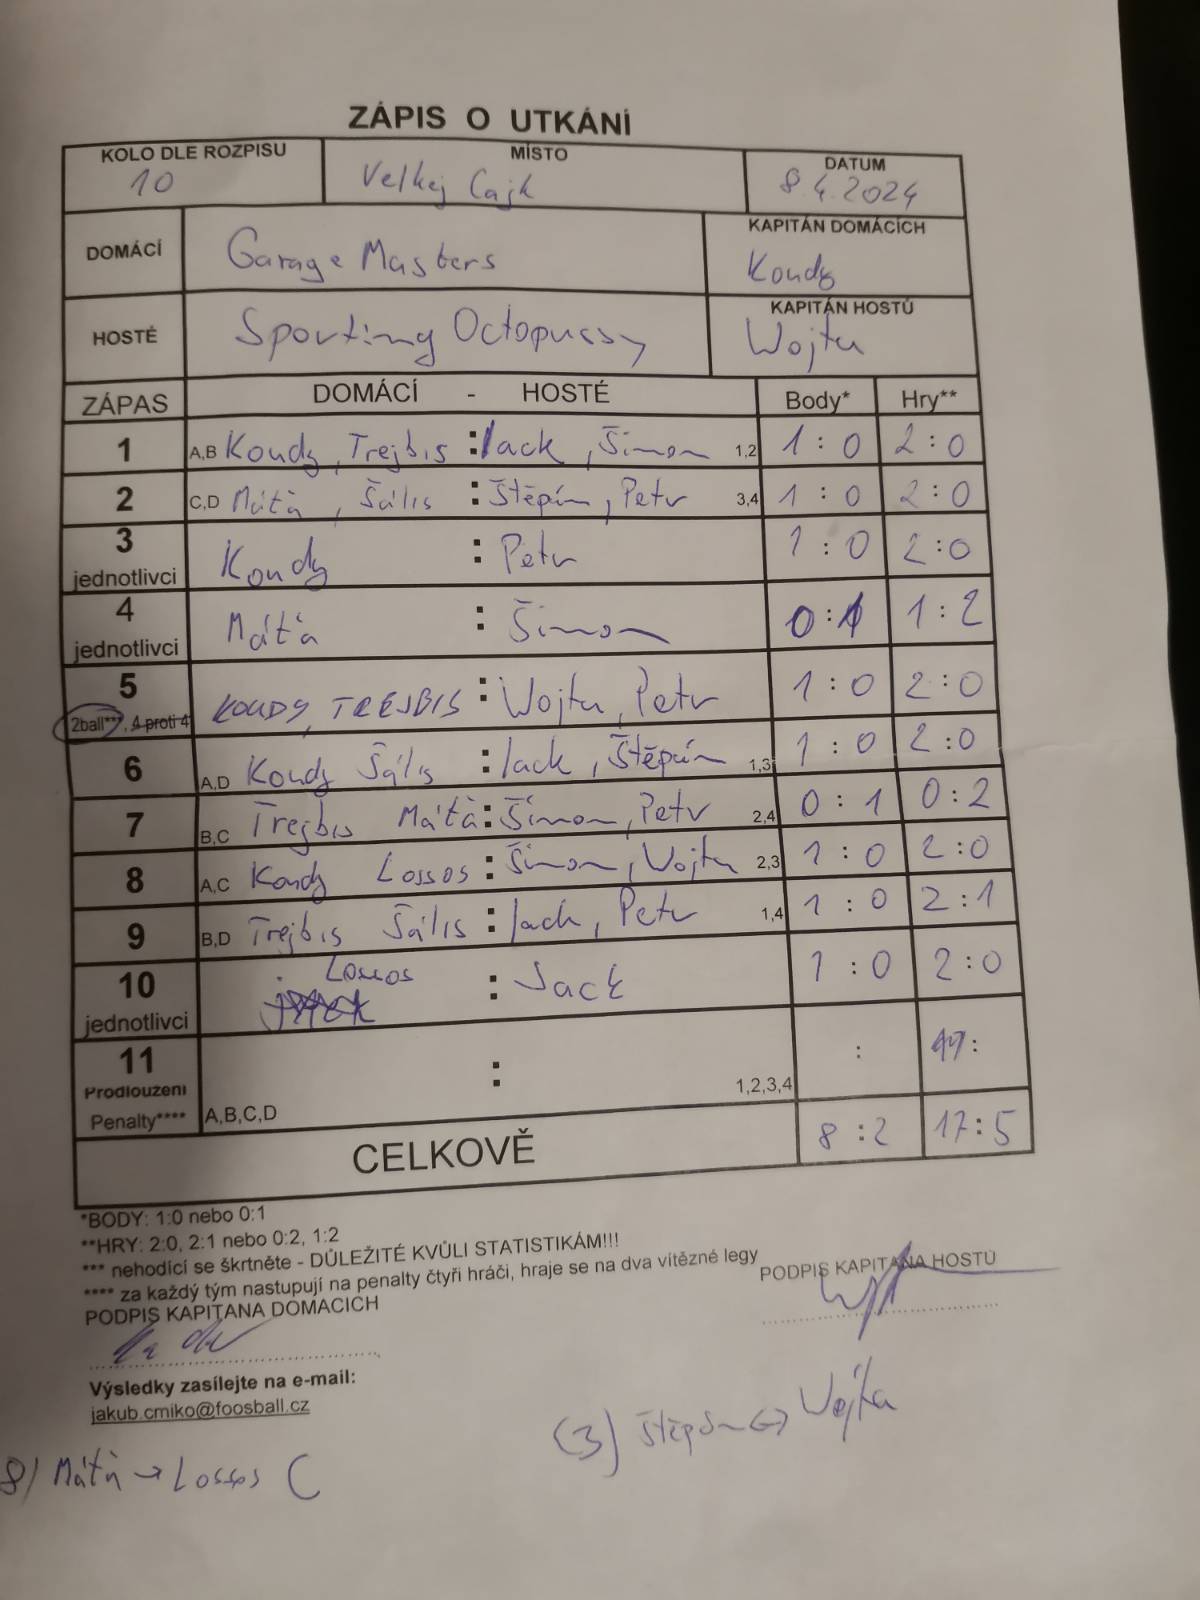 ZÁPIS O UTKÁNÍ
KOLO DLE ROZPISU MÍSTO DATUM
10 Velkej Cajk 8.4.2024
DOMÁCÍ Garage Masters KAPITÁN DOMÁCÍCH
Kondy
HOSTÉ Sporting Octopussy KAPITÁN HOSTŮ
Wojta
ZÁPAS DOMÁCÍ - HOSTÉ Body* Hry**
1 A,B Kondy, Trejbis : Jack, Šimon 1,2 1:0 2:0
2 C,D Máťa, Šális : Štěpán, Petr 3,4 1:0 2:0
3 jednotlivci Kondy : Petr 1:0 2:0
4 jednotlivci Máťa : Šimon 0:1 1:2
5 2ball***, 4 proti 4 KONDY, TREJBIS : Wojta, Petr 1:0 2:0
6 A,D Kondy Šális : Jack, Štěpán 1,3 1:0 2:0
7 B,C Trejbis Máťa : Šimon, Petr 2,4 0:1 0:2
8 A,C Kondy Lossos : Šimon, Wojta 2,3 1:0 2:0
9 B,D Trejbis Šális : Jack, Petr 1,4 1:0 2:1
10 jednotlivci Lossos : Jack 1:0 2:0
11 Prodloužení : :
Penalty**** A,B,C,D 1,2,3,4
CELKOVĚ 8:2 17:5
*BODY: 1:0 nebo 0:1
**HRY: 2:0, 2:1 nebo 0:2, 1:2
*** nehodící se škrtněte - DŮLEŽITÉ KVŮLI STATISTIKÁM!!!
**** za každý tým nastupují na penalty čtyři hráči, hraje se na dva vítězné legy
PODPIS KAPITANA DOMACICH PODPIS KAPITANA HOSTŮ
Výsledky zasílejte na e-mail:
jakub.cmiko@foosball.cz
(3) Štěpán <-> Wojta
8) Máťa → Lossos C